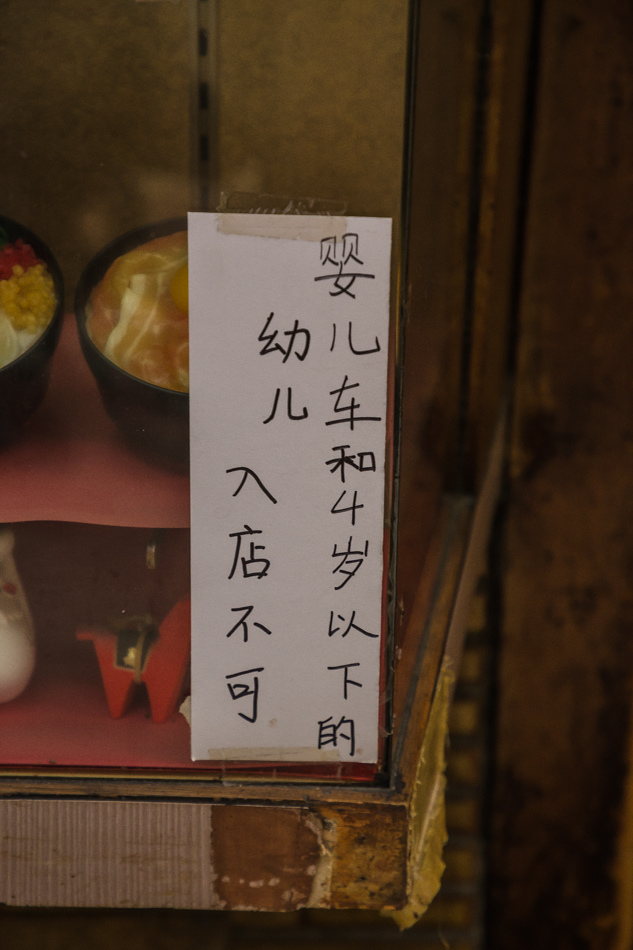 婴儿车和4岁以下的
幼儿
入店不可